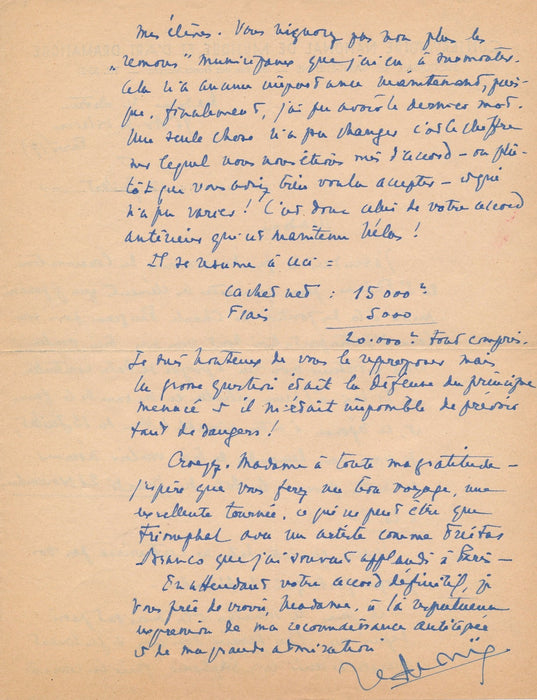 mes élèves. Vous n'ignorez pas non plus les
"remous" municipaux que j'ai eu à surmonter.
Cela n'a aucune importance maintenant, puis-
que, finalement, j'ai pu avoir le dernier mot.
Une seule chose n'a pu changer c'est le chiffre
sur lequel nous nous étions mis d'accord – ou plu-
tôt que vous aviez bien voulu accepter – et qui
n'a pu varier! C'est donc celui de votre accord
antérieur qui est maintenu hélas!
Il se résume à ceci =
Cachet net : 15 000 fr
Frais 5000
20.000 fr tout compris.
Je suis honteux de vous le reproposer mais
la grosse question était la défense du principe
menacé et il m'était impossible de prévoir
tant de dangers!
Croyez, Madame à toute ma gratitude –
j'espère que vous ferez un bon voyage, une
excellente tournée, ce qui ne peut être que
triomphal avec un artiste comme Freitas
Branco que j'ai souvent applaudi à Paris –
En attendant votre accord définitif, je
vous prie de croire, Madame, à la respectueuse
expression de ma reconnaissance anticipée
et de ma grande admiration